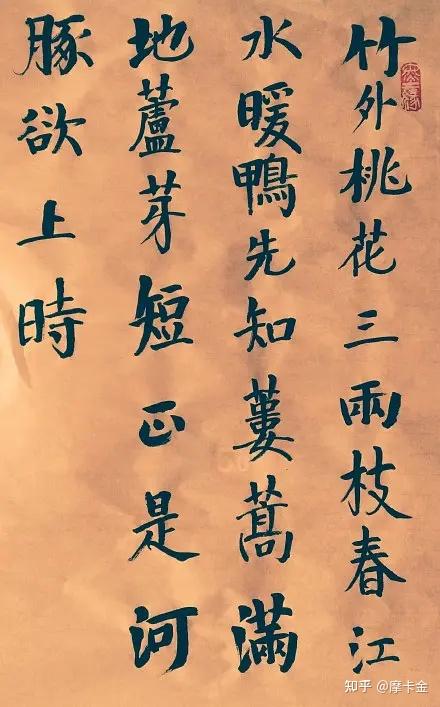 竹外桃花三兩枝春江
水暖鴨先知蔞蒿滿
地蘆芽短正是河
豚欲上時
知乎 @摩卡金